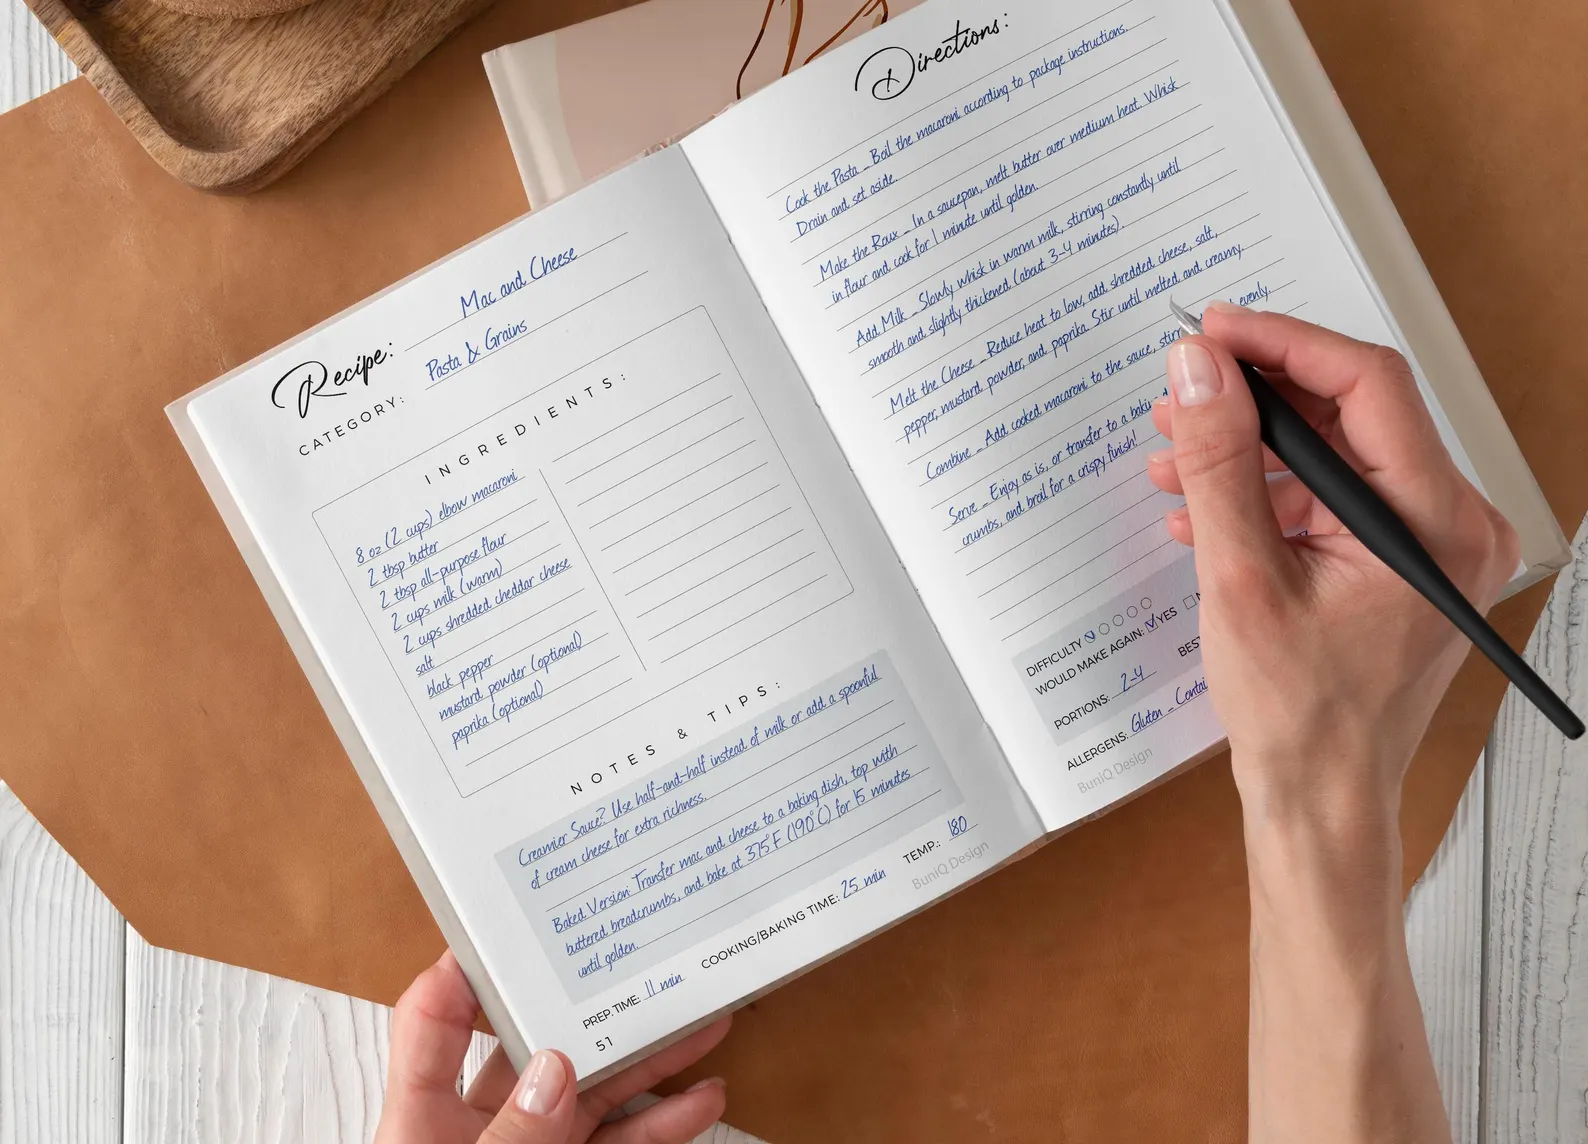 Recipe: Mac and Cheese
CATEGORY: Pasta & Grains
INGREDIENTS:
8 oz (2 cups) elbow macaroni
2 tbsp butter
2 tbsp all-purpose flour
2 cups milk (warm)
2 cups shredded cheddar cheese
salt
black pepper
mustard powder (optional)
paprika (optional)
NOTES & TIPS:
Creamier Sauce? Use half-and-half instead of milk or add a spoonful
of cream cheese for extra richness.
Baked Version: Transfer mac and cheese to a baking dish, top with
buttered breadcrumbs, and bake at 375°F (190°C) for 15 minutes
until golden.
PREP.TIME: 11 min COOKING/BAKING TIME: 25 min TEMP.: 180
51 BuniQ Design
Directions:
Cook the Pasta _ Boil the macaroni according to package instructions.
Drain and set aside.
Make the Roux _ In a saucepan, melt butter over medium heat. Whisk
in flour and cook for 1 minute until golden.
Add Milk _ Slowly whisk in warm milk, stirring constantly until
smooth and slightly thickened (about 3-4 minutes).
Melt the Cheese _ Reduce heat to low, add shredded cheese, salt,
pepper, mustard powder, and paprika. Stir until melted and creamy.
Combine _ Add cooked macaroni to the sauce, evenly.
Serve _ Enjoy as is, or transfer to a
crumbs, and broil for a crispy finish!
DIFFICULTY
WOULD MAKE AGAIN: YES
PORTIONS: 2-4
ALLERGENS: Gluten _
BuniQ Design